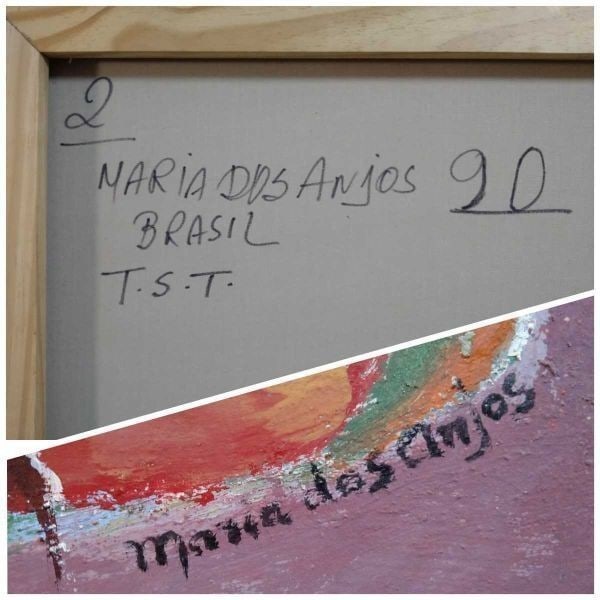 2
MARIA DOS ANJOS 90
BRASIL
T.S.T.
maria dos anjos